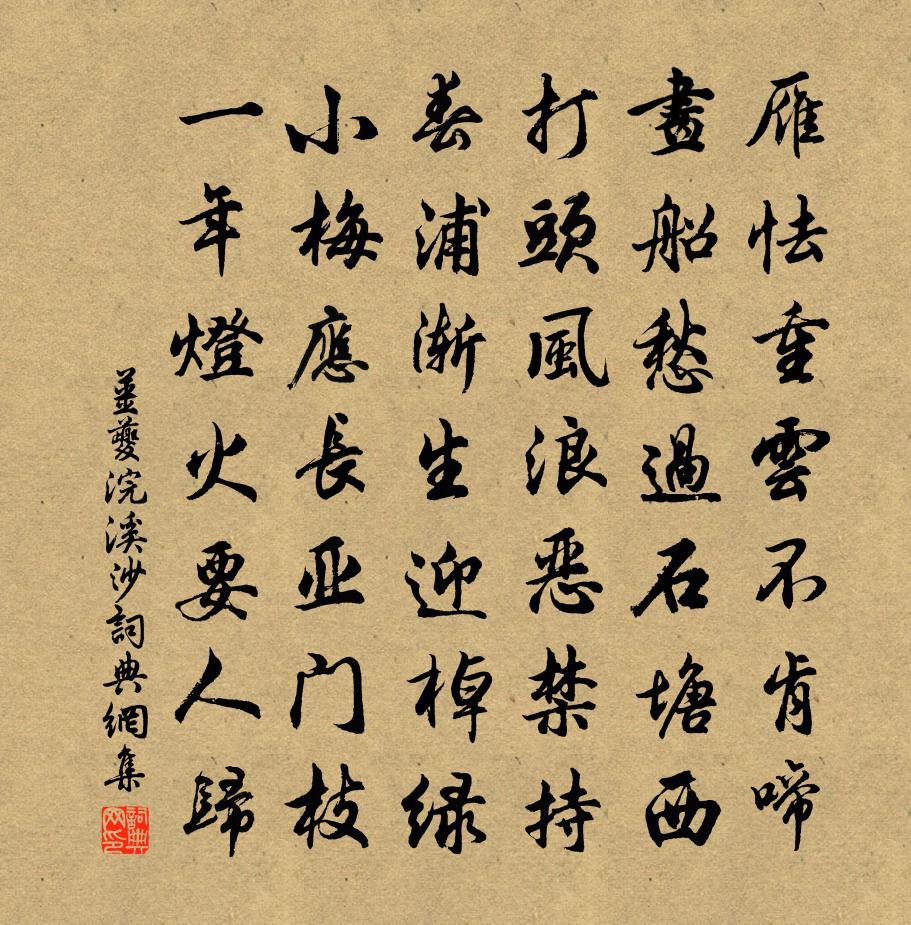 雁怯重雲不肯啼
畫船愁過石塘西
打頭風浪惡禁持
春浦漸生迎棹緑
小梅應長亚门枝
一年燈火要人歸
姜夔浣溪沙詞典網集
詞典网印